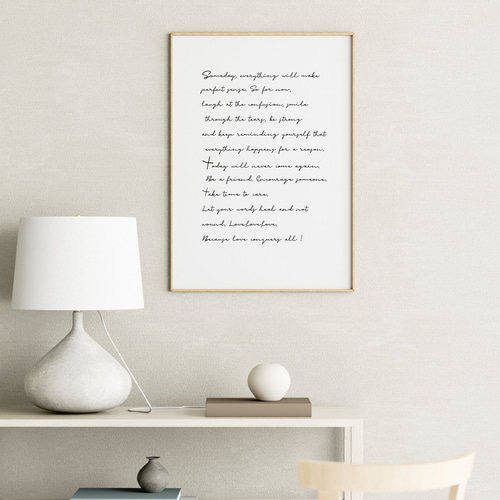 Someday, everything will make
perfect sense. So for now,
laugh at the confusion, smile
through the tears, be strong
and keep reminding yourself that
everything happens for a reason.
Today will never come again.
Be a friend. Encourage someone.
Take time to care.
Let your words heal and not
wound. Love.Love.Love.
Because love conquers all !